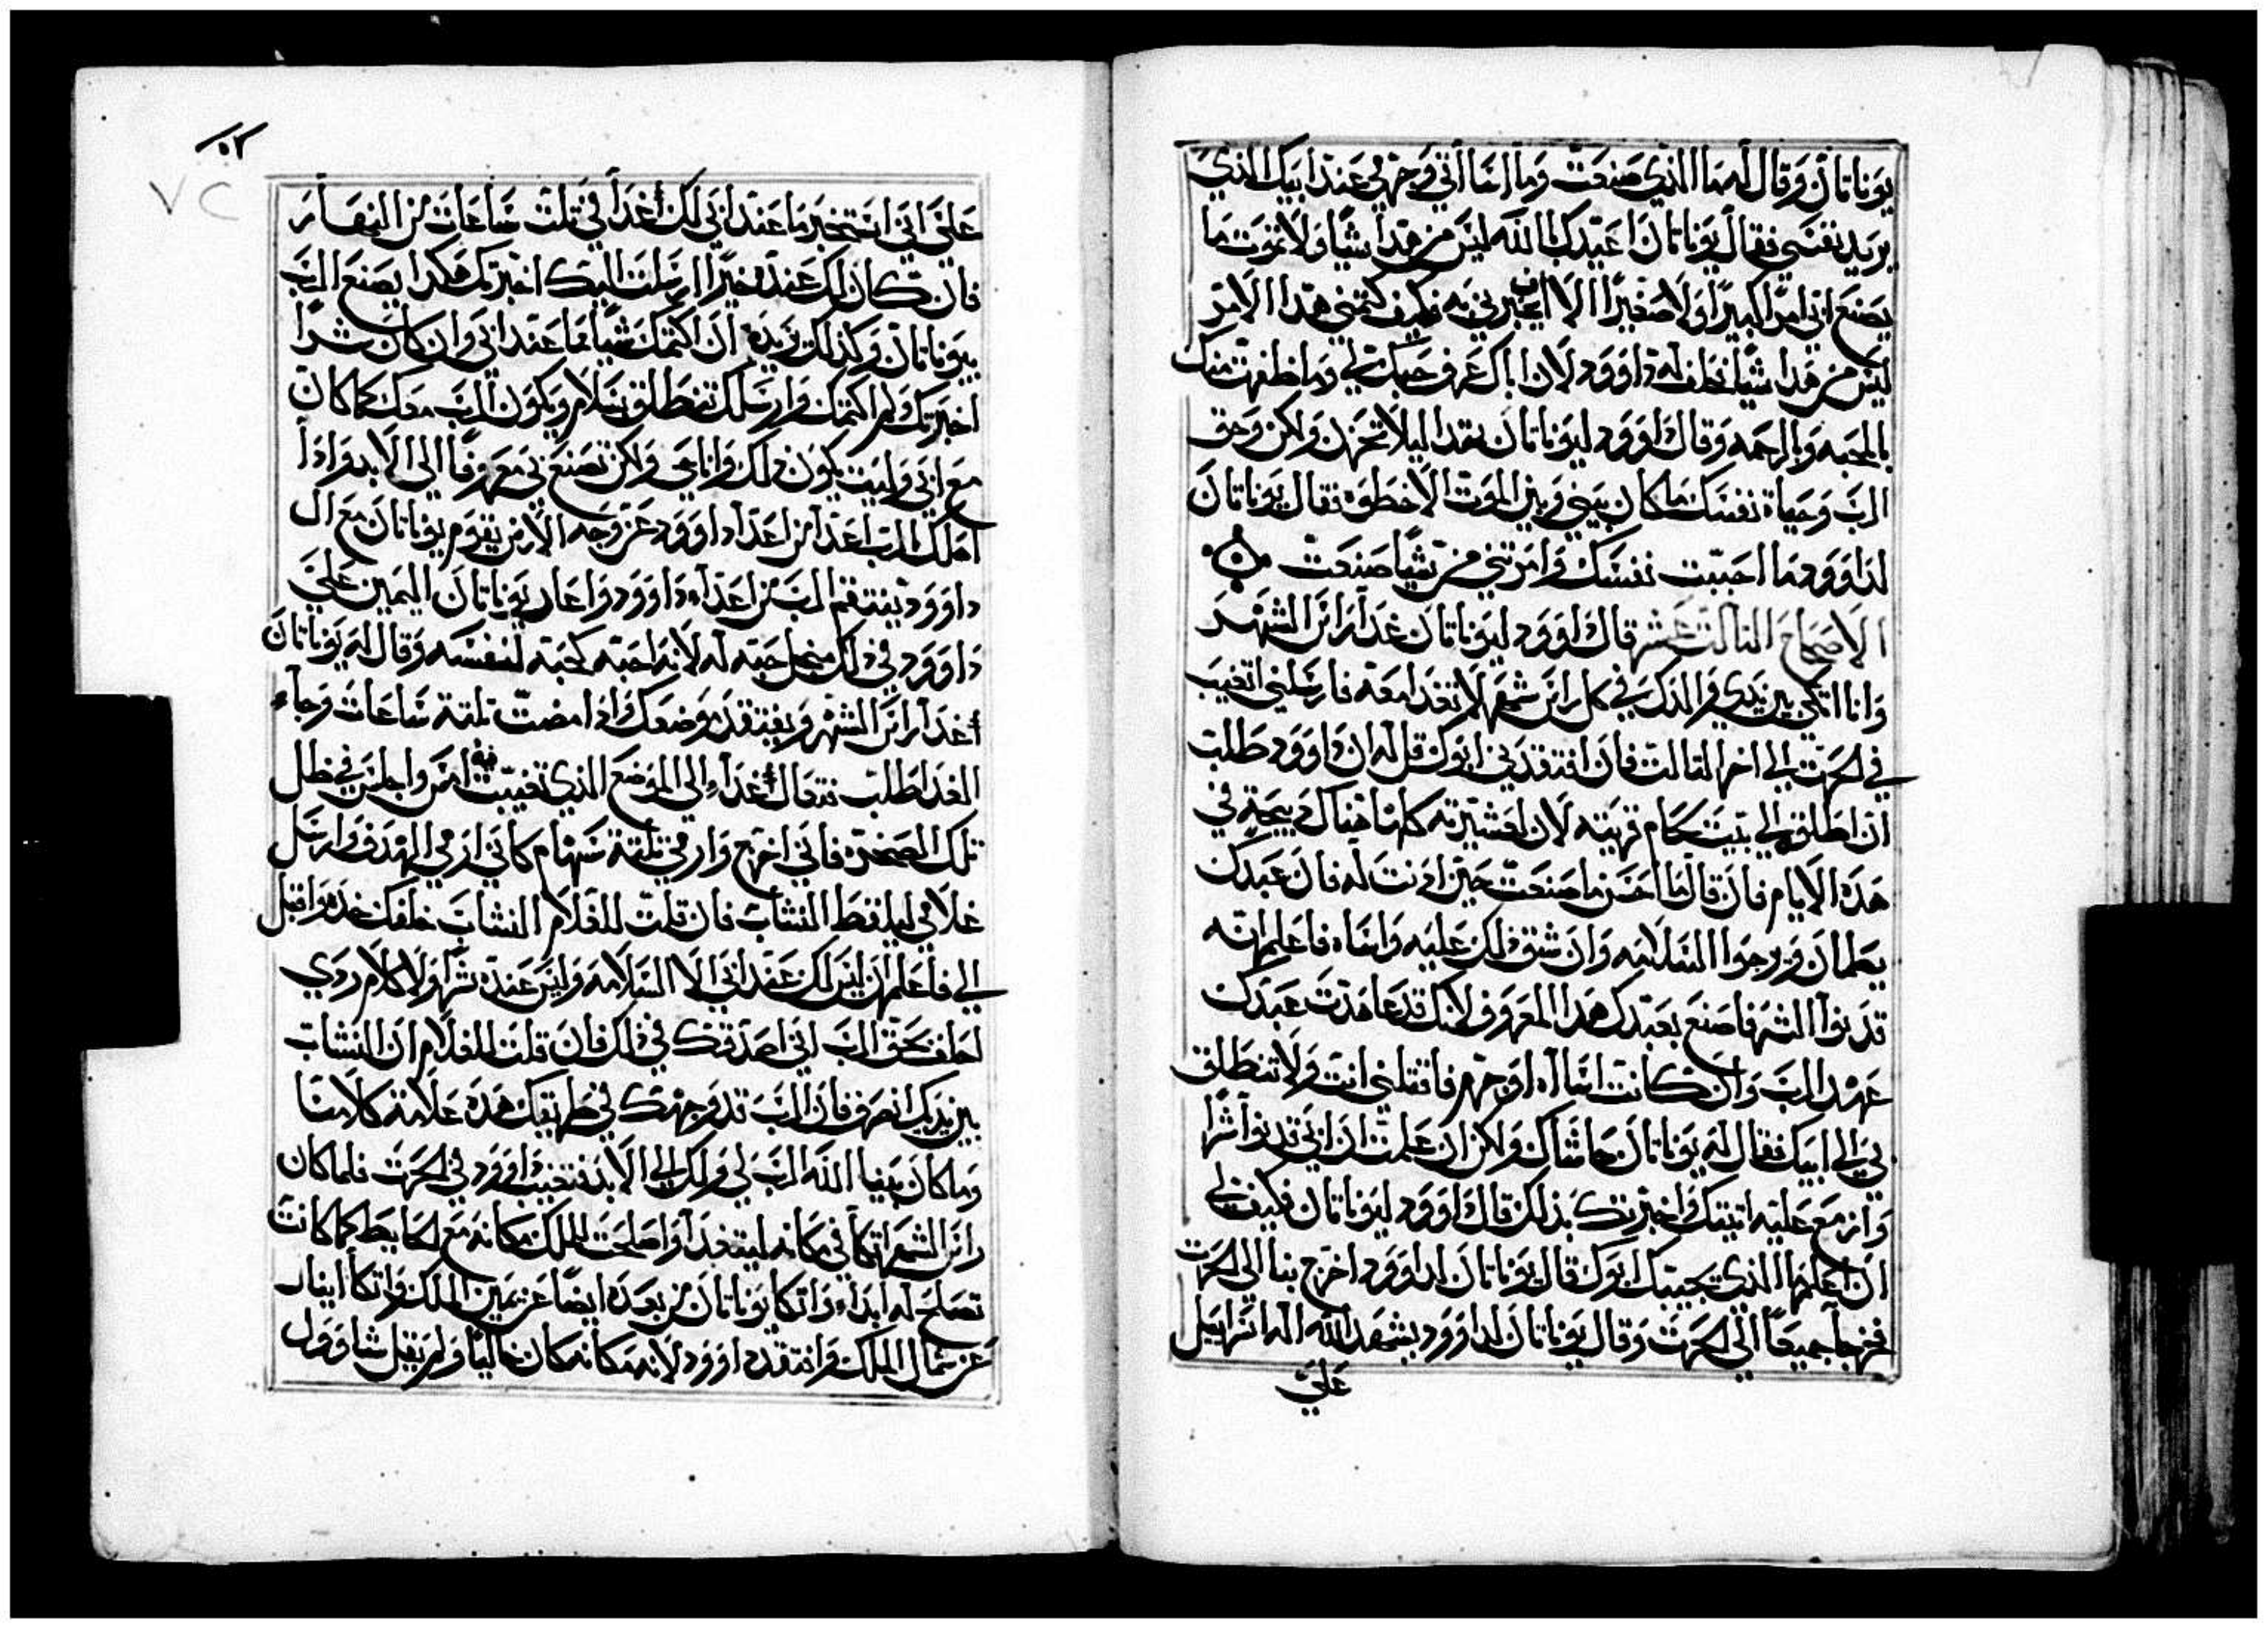 يوناتان وقال له ما الذي صنعت وما اسااتي وجرمي عند ابيك الذي
يريد نفسي فقال يوناتان اعيدك بالله ليس من هذا شيا ولا تموت ما
يصنع ابي امرا كبيرا ولا صغيرا الا ان يخبرني به فكيف كتمني هذا الامر
ليس من هذا شيا فحلف له داوود لان اباك عرف حبك لي وما ظفرت منك
بالمحبه وبالرحمه وقال داوود ليوناتان بهدا ليلا تحزن ولكن وحق
الرب وحياة نفسك ما كان بيني وبين الموت الا خطوه فقال يوناتان
لداوود ما احبيت نفسك وامرتني من شيا صنعت
الاصحاح التالت عشر قال داوود ليوناتان غدا راس الشهر
وانا اتكي بين يدي الملك في كل راس شهر لاتغدا معه فارسلني اتغيب
في الحرت الي اخر التالت فان افتقدني ابوك قل له ان داوود طلب
ان اطلق الي بيت لحام قريته لان لعشيرته كلها هناك دبيحة في
هذه الايام فان قال ما احسن ما صنعت حين ادنت له فان عبدك
يطمان ويرجوا السلامه وان شق ذلك عليه واساه فاعلم انه
قد نوا الشر فاصنع بعبدك هذا المعروف لانك قد عاهدت عبدك
عهد الرب وان كانت اساآه او جرم فاقتلني انت ولا تنطلق
بي الي ابيك فقال له يوناتان حاشاك ولكن ان علمت ان ابي قد نوا شرا
وازمع عليه اتيتك واخبرتك بذلك قال داوود ليوناتان فكيف لي
ان اعلم ما الذي يجيبك ابوك قال يوناتان لداوود اخرج بنا الي الحرت
فخرجا جميعا الي الحرت وقال يوناتان لداوود يشهد الله اله اسراييل
علي
٥٢
٧٢
علي اني استخبر ما عند ابي لك غدا في تلت ساعات من النهار
فان كان لك عنده خيرا ارسلت اليك اخبرتك هكدا يصنع الرب
بيوناتان وكذلك يزيده ان اكتمك شيا مما عند ابي وان كان شرا
اخبرتك ولم اكتمك وارسلك تنطلق بسلام ويكون الرب معك كما كان
مع ابي وليت يكون ذلك وانا حي ولكن تصنع بي معروفا الي الابد واذا
اهلك الرب اعدا من اعداء داوود عن وجه الارض يقوم يوناتان مع ال
داوود ينتقم الرب من اعداء داوود واعاد يوناتان اليمين علي
داوود في ذلك من اجل حبه له لانه احبه كحبه لنفسه وقال له يوناتان
غدا راس الشهر ويفتقد موضعك اذا مضت تلتة ساعات وجاء
الغدا طلبت فتعال غداء الي الموضع الذي تغيبت فيه امس واجلس في ظل
تلك الصخره فاني اخرج وارمي تلتة سهام كاني ارمي الهدف وارسل
غلامي ليلقط النشاب فان قلت للغلام النشاب خلفك خده واقبل
الي فاعلم ان ليس لك عند ابي الا السلامه وليس عنده شرا ولا كلام ردي
احلف بحق الرب اني اصدقك في ذلك فان قلت للغلام ان النشاب
بين يديك انصرف فان الرب قد وجهك في طريقك هذه علامة كلامنا
وما كان بيننا الله الرب لي ولك الي الابد فتغيب داوود في الحرت فلما كان
راس الشهر اتكا في مكانه ليتغدا واصلحت للملك مكانه مع الحايط كما كانت
تصلح له ابداء واتكا يوناتان من بعده ايضا عن يمين الملك واتكا ابينار
عن شمال الملك وافتقد داوود لانه مكانه كان خاليا ولم يقل شاوول